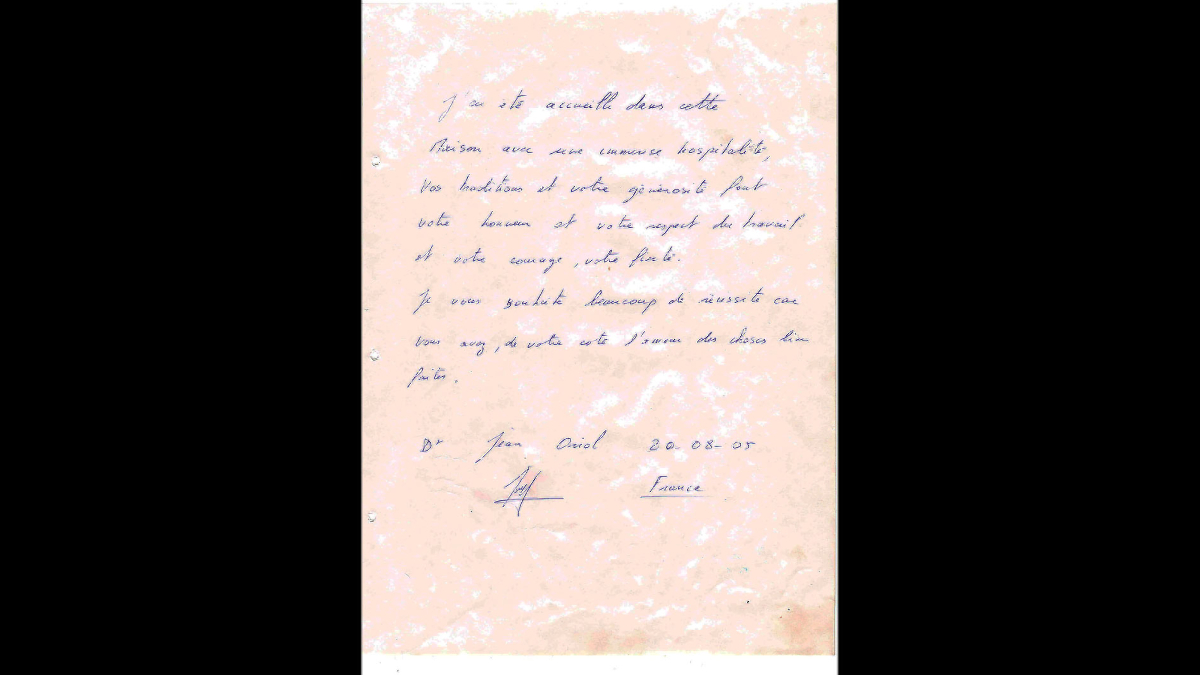 J'ai été accueilli dans cette
Maison avec une immense hospitalité,
Vos traditions et votre générosité font
votre honneur et votre respect du travail
et votre courage, votre fierté.
Je vous souhaite beaucoup de réussite car
vous avez, de votre coté l'amour des choses bien
faites.
Dr Jean Oriol 20-08-05
France